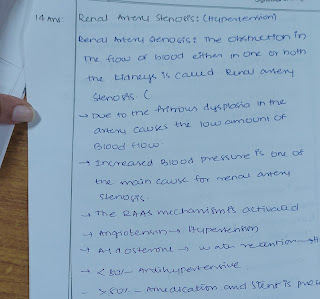 14 Ans: Renal Artery Stenosis: (Hypertension)
Renal Artery Stenosis: The obstruction in
the flow of blood either in one or both
the kidneys is called Renal artery
stenosis. (
→ Due to the fribrous dysplasia in the
artery causes the low amount of
Blood flow.
→ Increased Blood pressure is one of
the main cause for renal artery
stenosis.
→ The RAAS mechanism is activated
→ Angiotensin → Hypertension
→ Aldosterone → water retention →
→ < 80% - Antihypertensive.
> 80% - Amedication and stent is